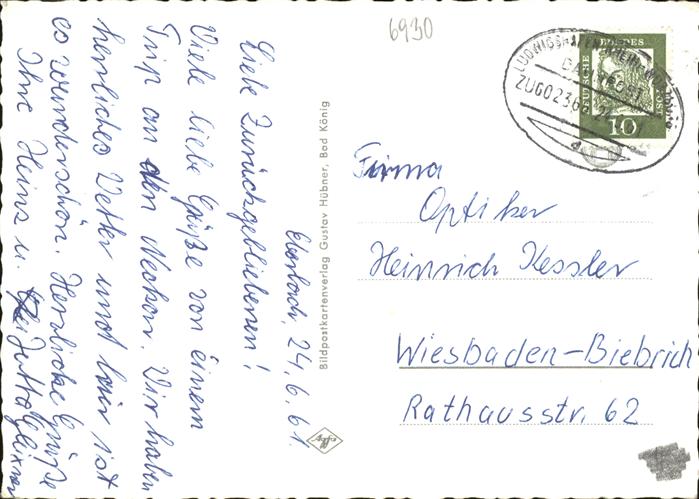 6930
Eberbach, 24.6.61.
Liebe Zurückgebliebenen!
Viele liebe Grüße von einem
Trip an den Neckar. Wir haben
herrliches Wetter und hier ist
es wunderschön. Herzliche Grüße
Ihre Heins u. Jutta
Bildpostkartenverlag Gustav Hübner, Bad König
LUDWIGSHAFEN (RHEIN)
BAHNPOST
ZUG0236
DEUTSCHE
BUNDESPOST
10
Firma
Optiker
Heinrich Kessler
Wiesbaden-Biebrich
Rathausstr. 62